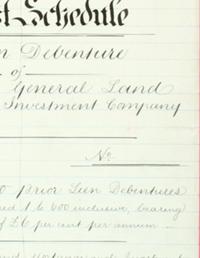 st Schedule
n Debenture
of
General Land
Investment Company
No
0 prior Lien Debentures
ed 1 to 600 inclusive, bearing
of £6 per cent per annum